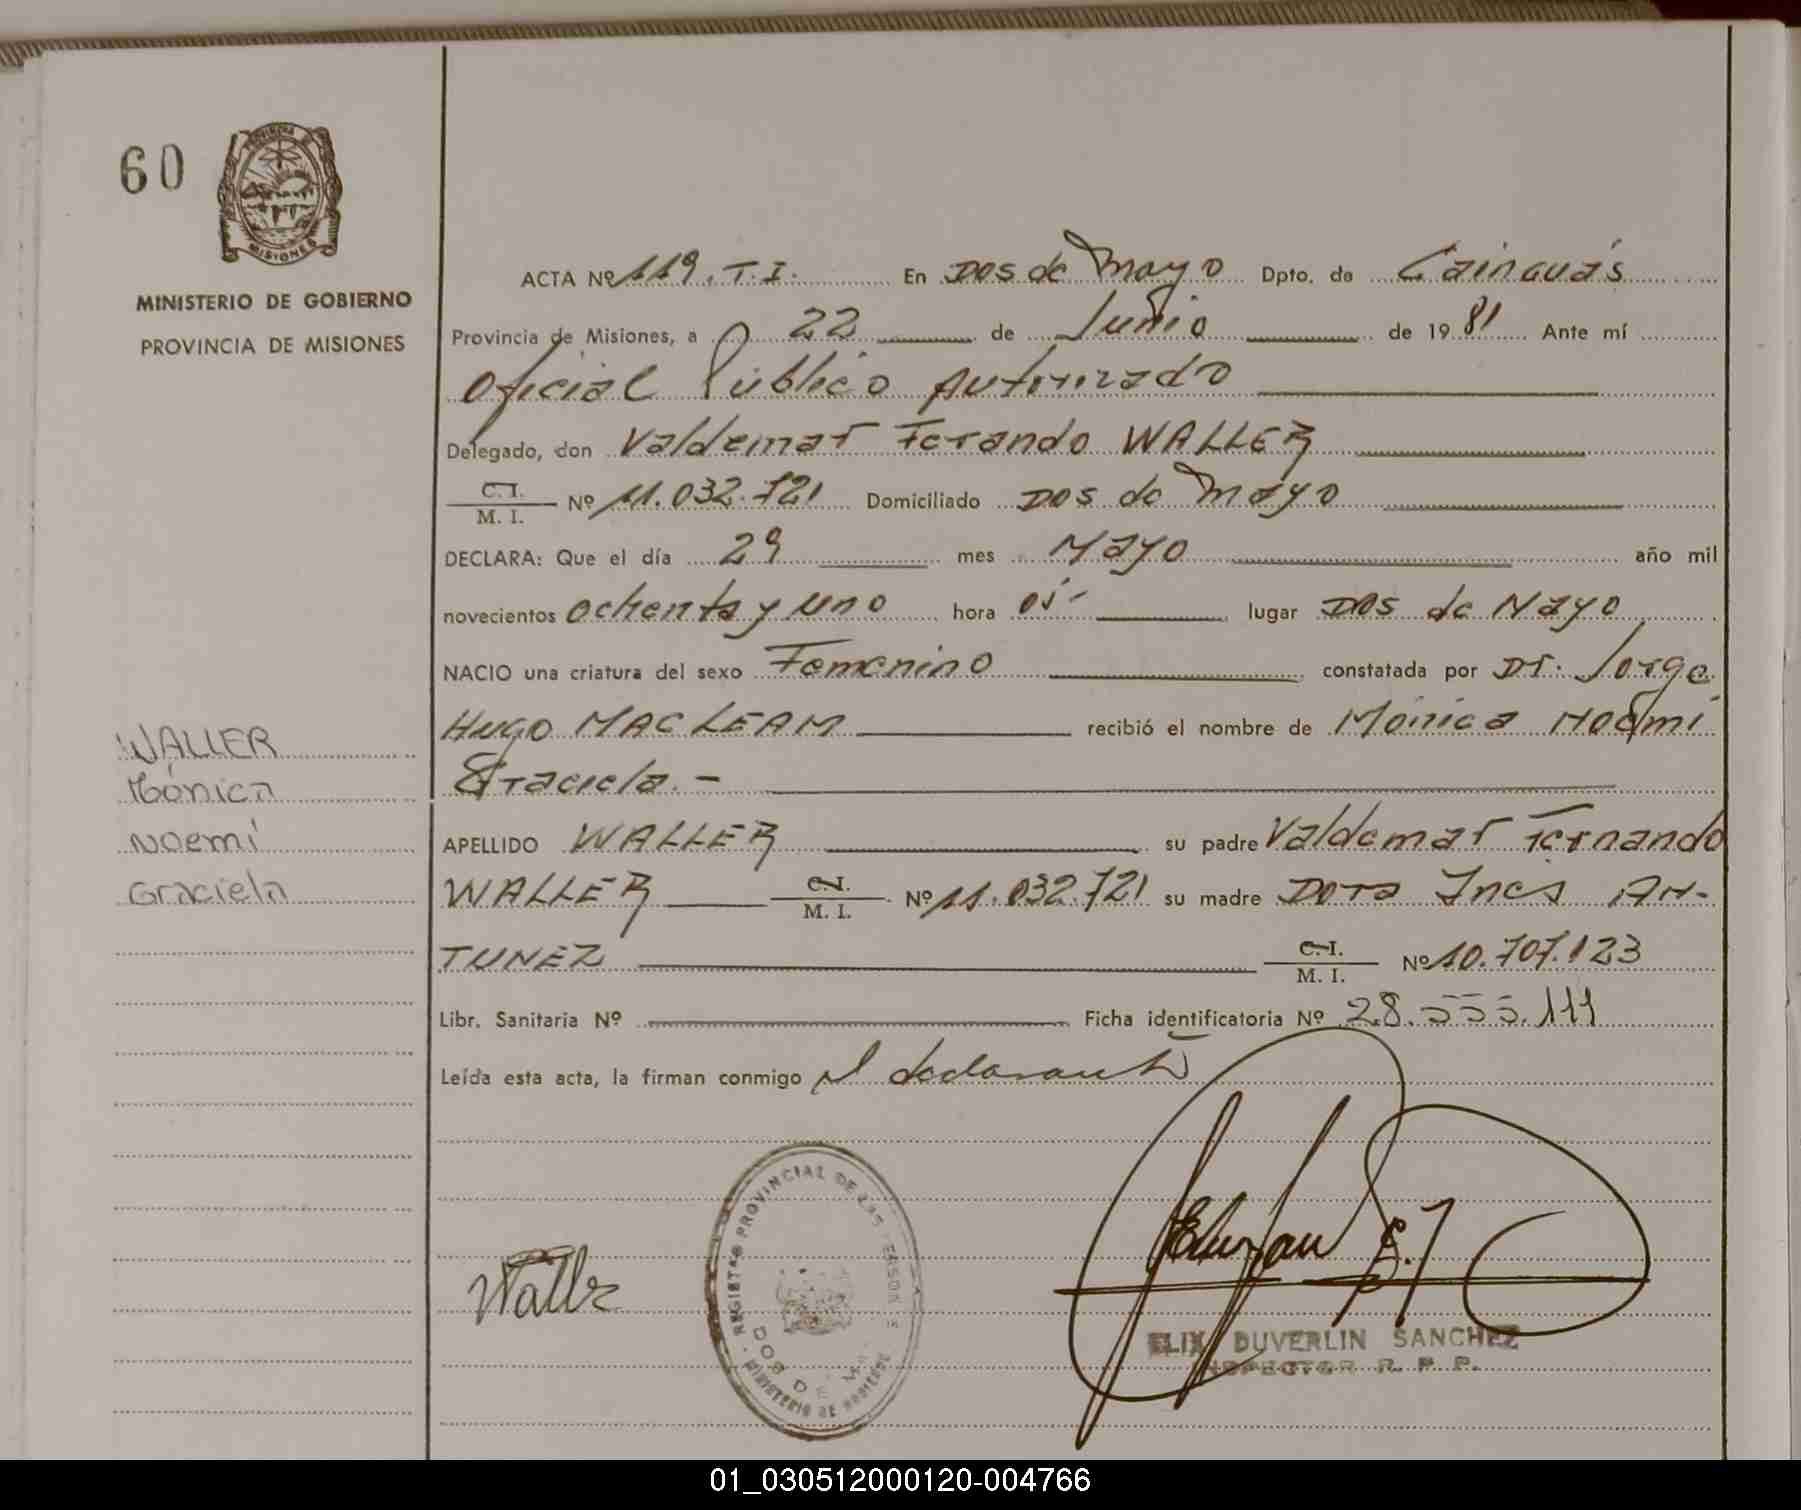 60
PROVINCIA DE
MISIONES
MINISTERIO DE GOBIERNO
PROVINCIA DE MISIONES
ACTA Nº 119. T.I. En Dos de Mayo Dpto. de Cainguás
Provincia de Misiones, a 22 de Junio de 1981 Ante mí
Oficial Público Autorizado
Delegado, don Valdemar Ferando WALLER
C.I.
M. I. Nº 11.032.721 Domiciliado Dos de Mayo
DECLARA: Que el día 29 mes Mayo año mil
novecientos ochenta y uno hora 05- lugar Dos de Mayo
NACIO una criatura del sexo Femenino constatada por Dr. Jorge
Hugo MAC LEAM recibió el nombre de Mónica Noemi
Graciela.-
WALLER
Mónica
Noemí
Graciela
APELLIDO WALLER su padre Valdemar Fernando
WALLER C.I.
M. I. Nº 11.032.721 su madre Dora Ines AN-
TUNEZ C.I.
M. I. Nº 10.707.123
Libr. Sanitaria Nº Ficha identificatoria Nº 28.555.111
Leída esta acta, la firman conmigo el declarante
REGISTRO PROVINCIAL DE LAS PERSONAS
DOS DE MAYO
MINISTERIO DE GOBIERNO
Waller
ELIX DUVERLIN SANCHEZ
INSPECTOR R. P. P.
01_030512000120-004766